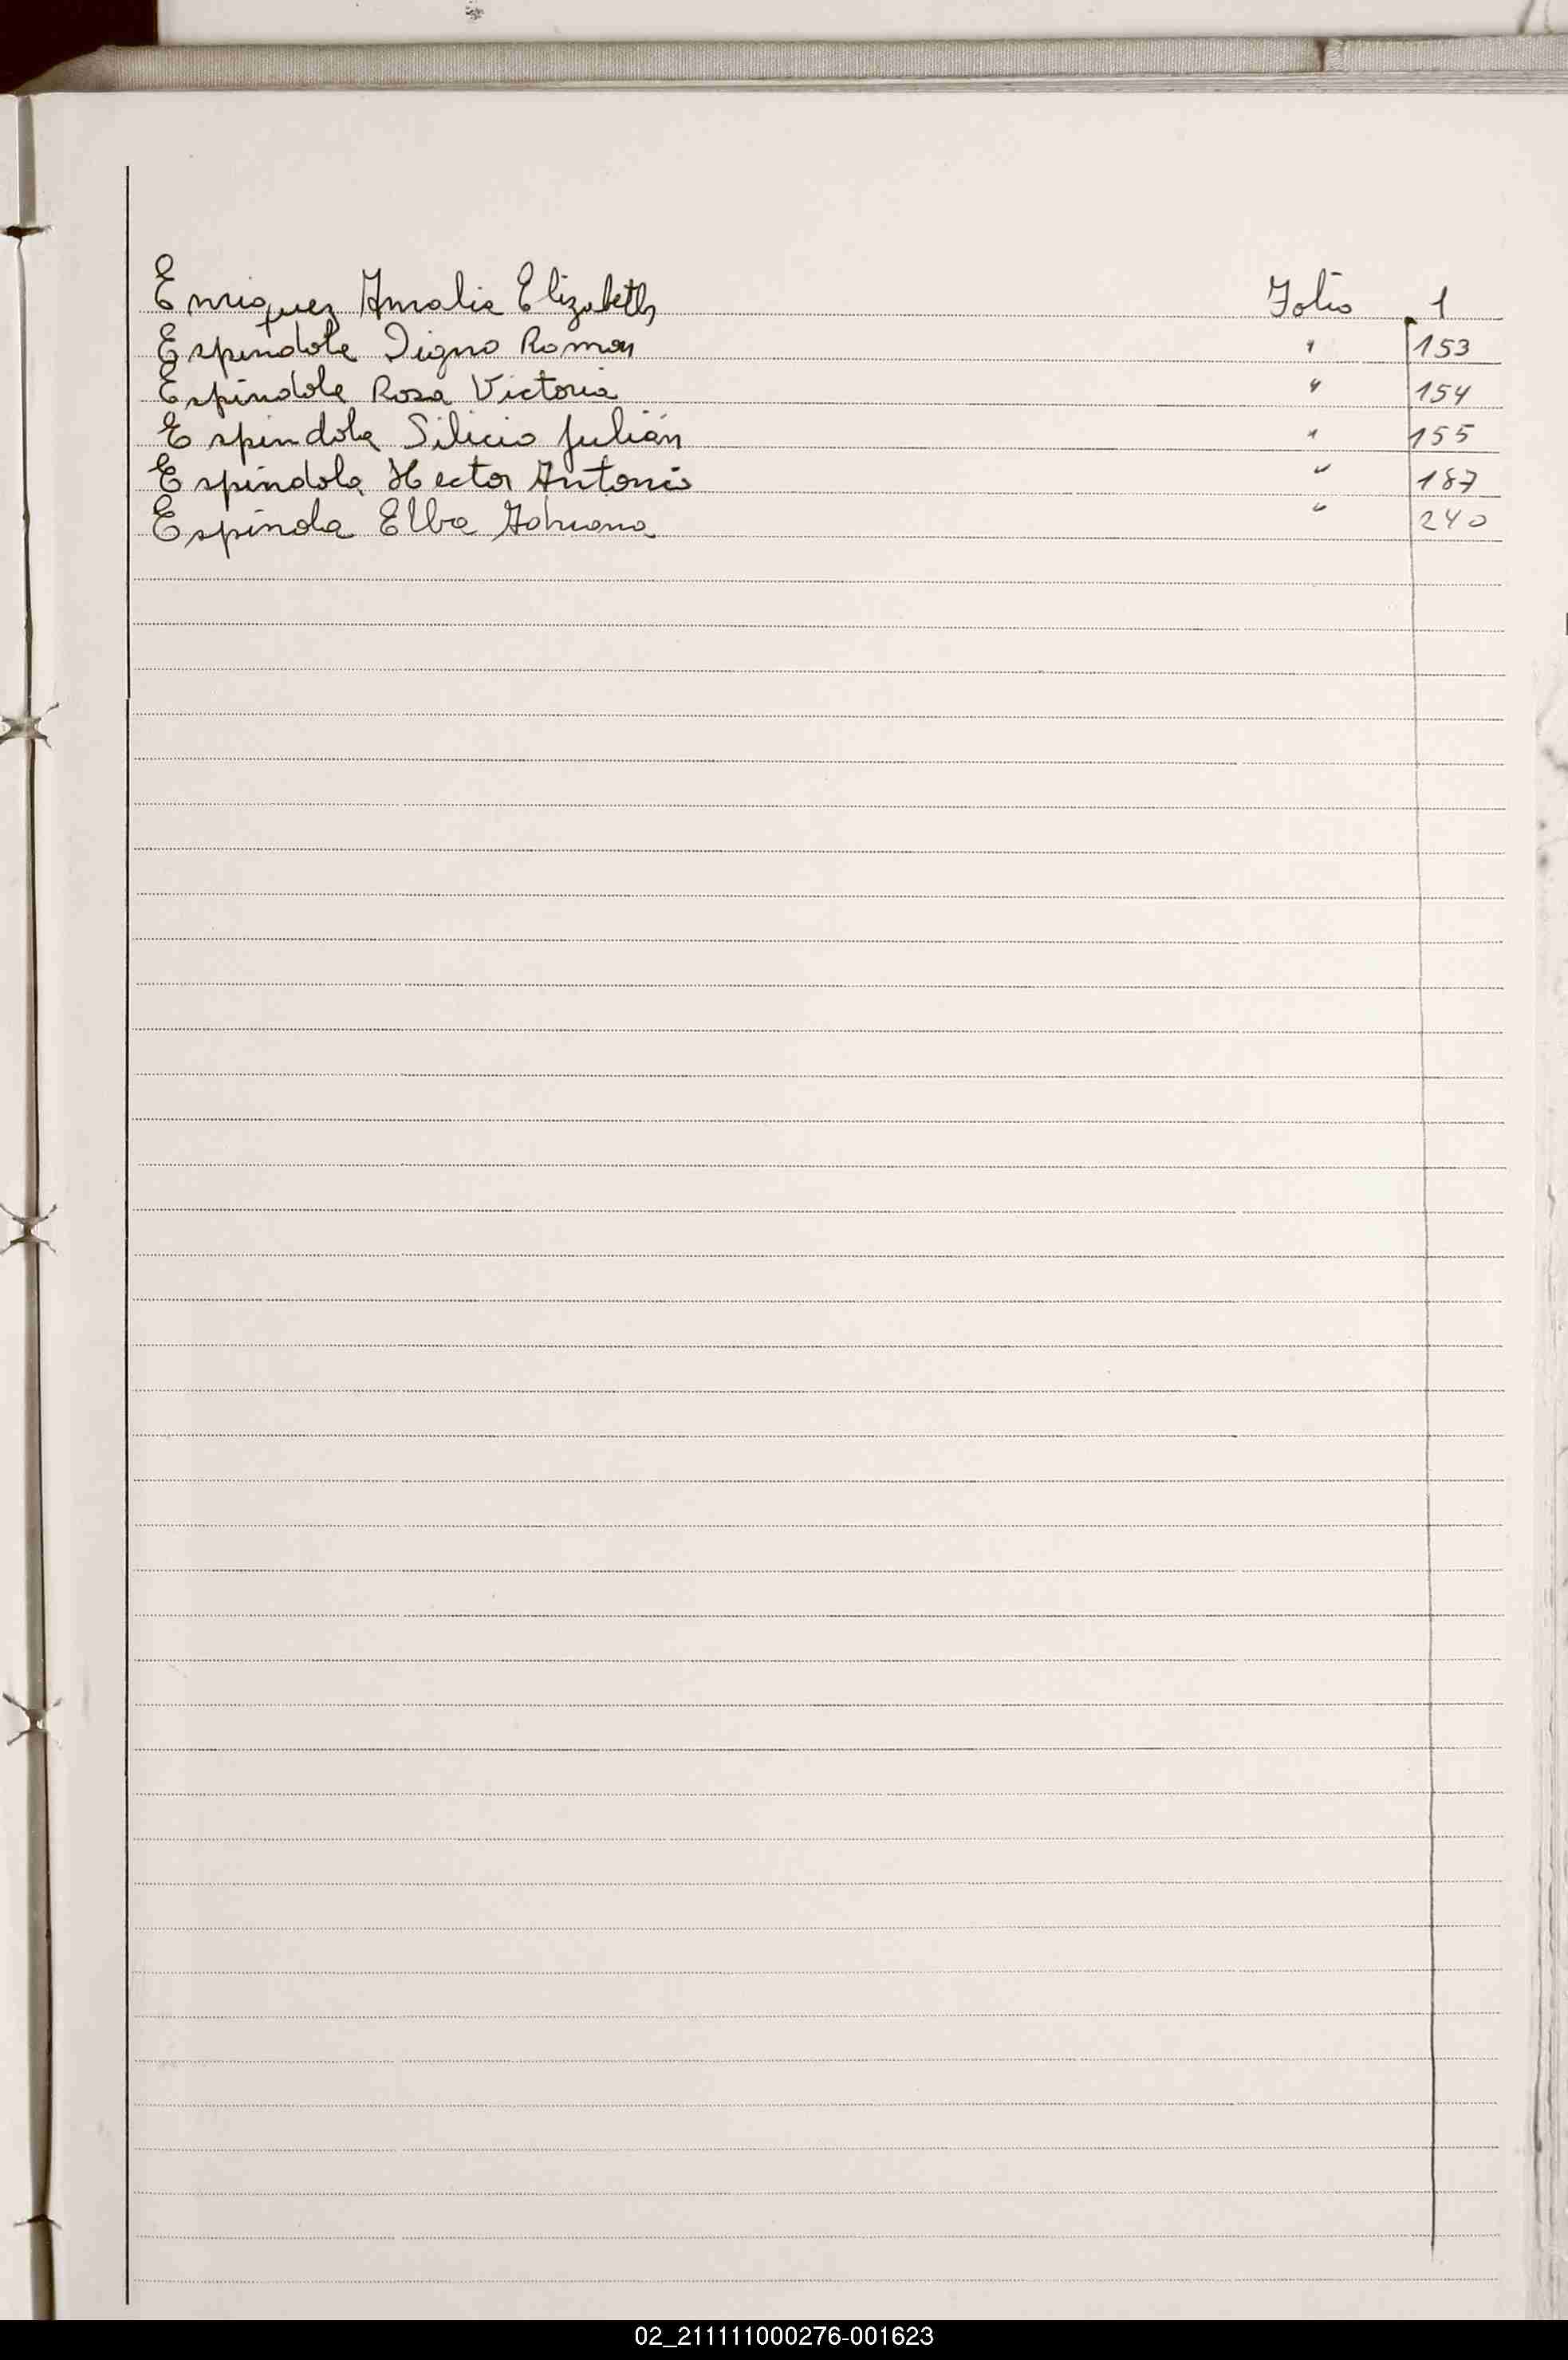 Enriquez Amalia Elizabeth Folio 1
Espindola Digno Roman " 153
Espindola Rosa Victoria " 154
Espindola Silicio Julián " 155
Espindola Hector Antonio " 187
Espinola Elba Adriana " 240
02_211111000276-001623